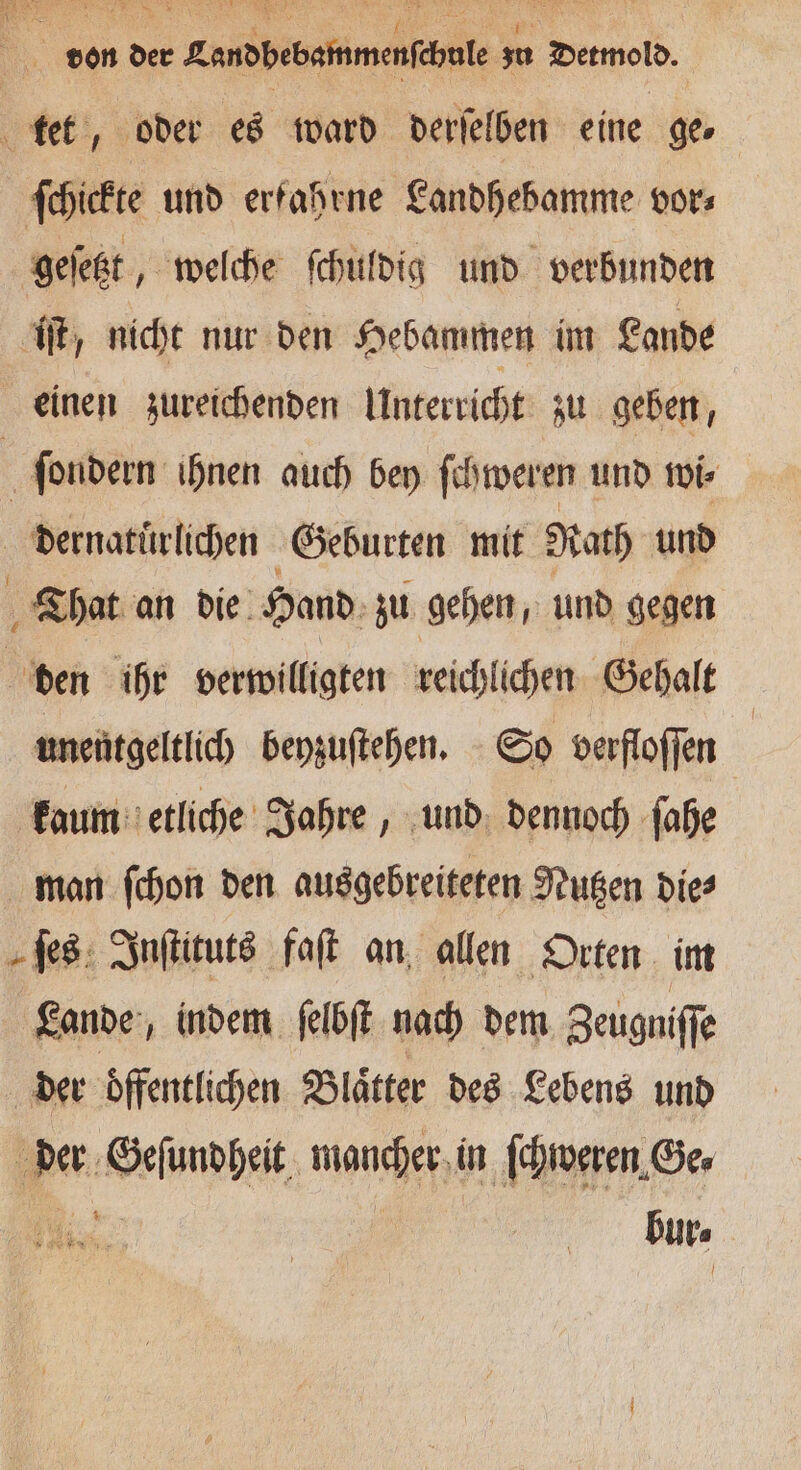 von der Landhebammenſchule zu Detmold.
tet, oder es ward derſelben eine ge⸗
ſchickte und erfahrne Landhebamme vor⸗
geſetzt, welche ſchuldig und verbunden
iſt, nicht nur den Hebammen im Lande
einen zureichenden Unterricht zu geben,
ſondern ihnen auch bey ſchweren und wi⸗
dernatuͤrlichen Geburten mit Rath und
That an die Hand zu gehen, und gegen
den ihr verwilligten reichlichen Gehalt
unentgeltlich beyzuſtehen. So verfloſſen
kaum etliche Jahre, und dennoch ſahe
man ſchon den ausgebreiteten Nutzen die⸗
ſes Inſtituts faſt an allen Orten im
Lande, indem ſelbſt nach dem Zeugniſſe
der oͤffentlichen Blaͤtter des Lebens und
der Geſundheit mancher in ſchweren Ge⸗
bur⸗